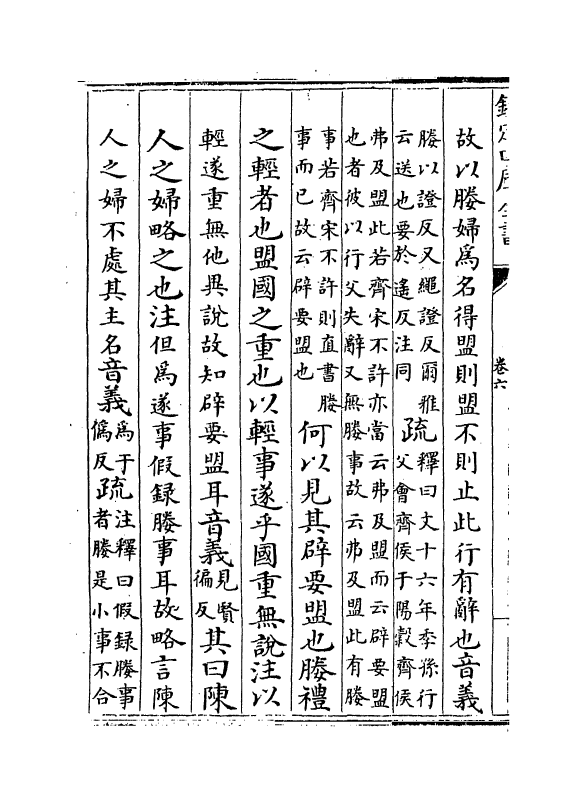 欽定四庫全書
卷六
故以媵婦爲名得盟則盟不則止此行有辭也音義
媵以證反又繩證反爾雅
云送也要於遙反注同
疏
釋曰文十六年季孫行
父會齊侯于陽穀齊侯
弗及盟此若齊宋不許亦當云弗及盟而云辟要盟
也者彼以行父失辭又無媵事故云弗及盟此有媵
事若齊宋不許則直書媵
事而已故云辟要盟也
何以見其辟要盟也媵禮
之輕者也盟國之重也以輕事遂乎國重無說注以
輕遂重無他異說故知辟要盟耳音義
見賢
徧反
其曰陳
人之婦略之也注但爲遂事假録媵事耳故略言陳
人之婦不處其主名音義
爲于
僞反
疏
注釋曰假録媵事
者媵是小事不合